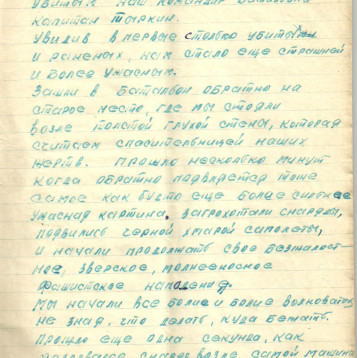 убиты. Наш командир батальона
капитан Тыркин.
Увидив в первые столько убитых
и раненых, нам стало еще страшней
и более ужасным.
Зашли в батальон обратно на
старое место, где мы стояли
возле толстой глухой стены, которая
считаем спасительницей наших
жертв. Прошло несколько минут
когда обратно появляется тоже
самое как будто еще более сильнее
ужасная картина. Загрохотали снаряды,
появились черной хмарой самолеты,
и начали продолжать свое безжалост-
ное, зверское, молнееносное
фашистское нападение.
Мы начали все более и более волноватся
не зная, что делать, куда бежать.
Прошло еще одна секунда, как
разорвался снаряд возле самой машины